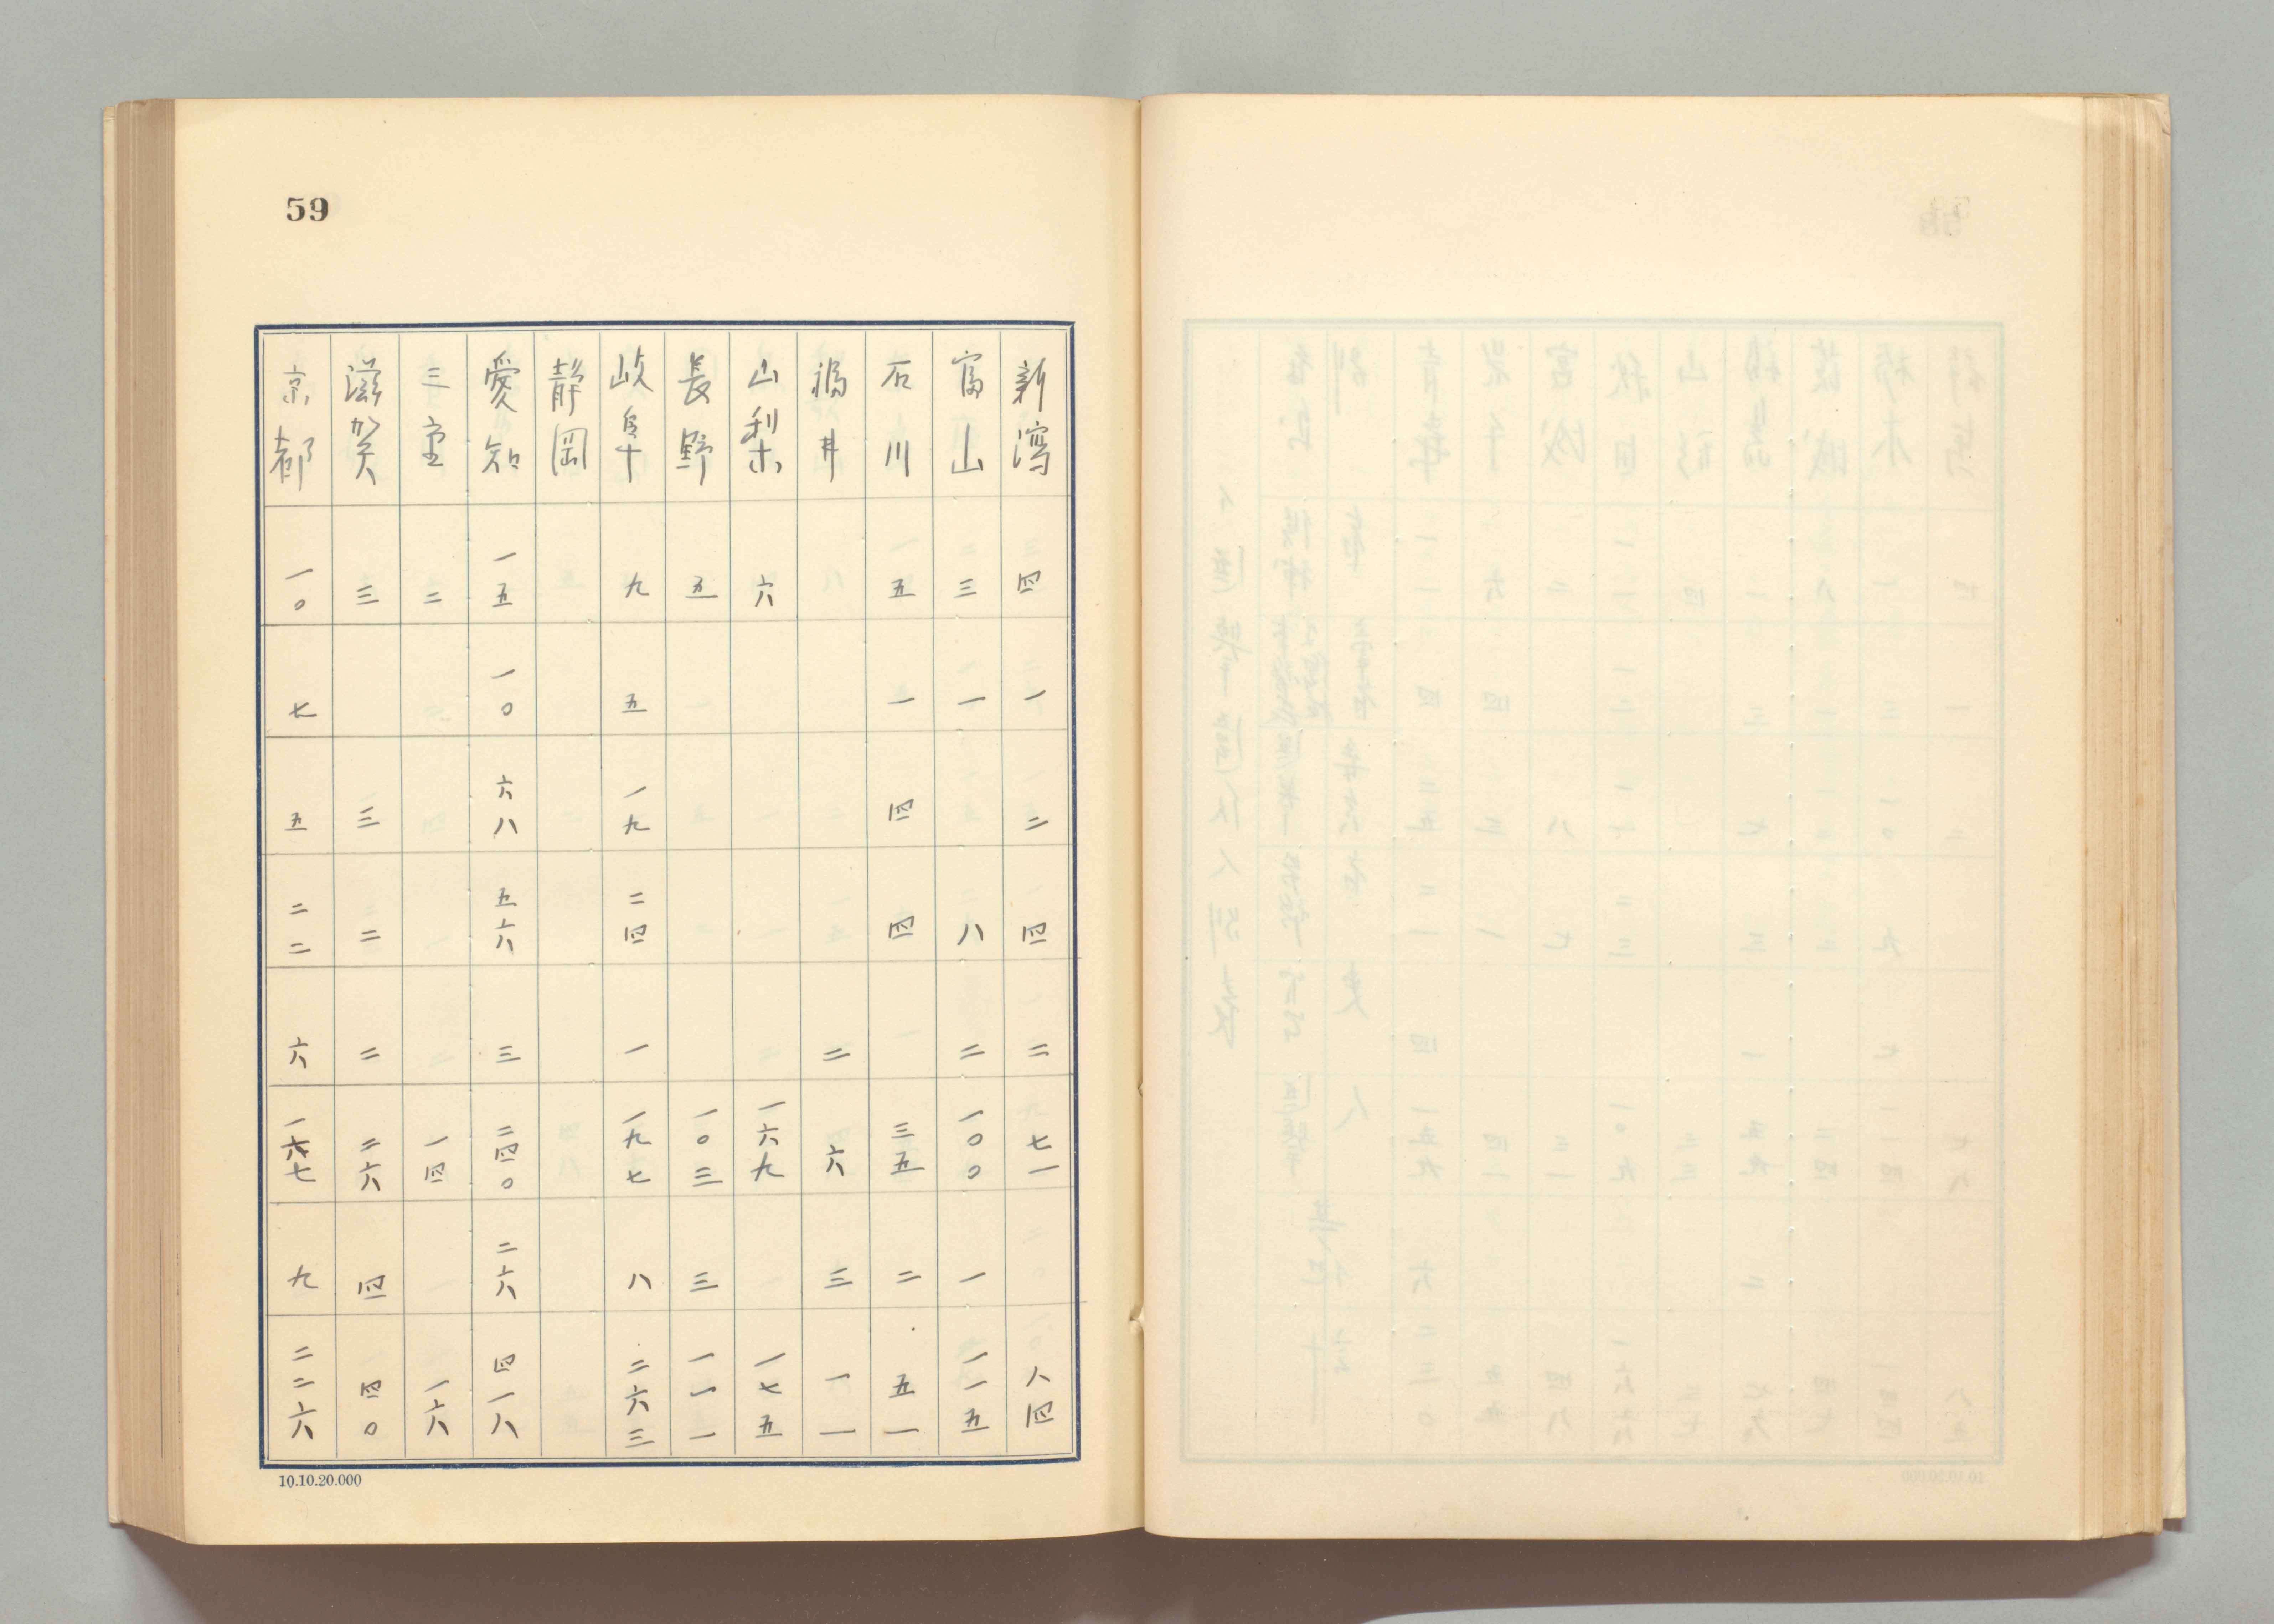 59
新瀉 四 一 二 四 二 七一 八四
富山 三 一 八 二 一〇〇 一 一一五
石川 五 一 四 四 三五 二 五一
福井 二 六 三 一一
山梨 六 一六九 一七五
長野 五 一〇三 三 一一一
岐阜 九 五 一九 二四 一 一九七 八 二六三
静岡
愛知 一五 一〇 六八 五六 三 二四〇 二六 四一八
三重 二 一四 一六
滋賀 三 三 二 二 二六 四 四〇
京都 一〇 七 五 二二 六 一六七 九 二二六
10.10.20.000